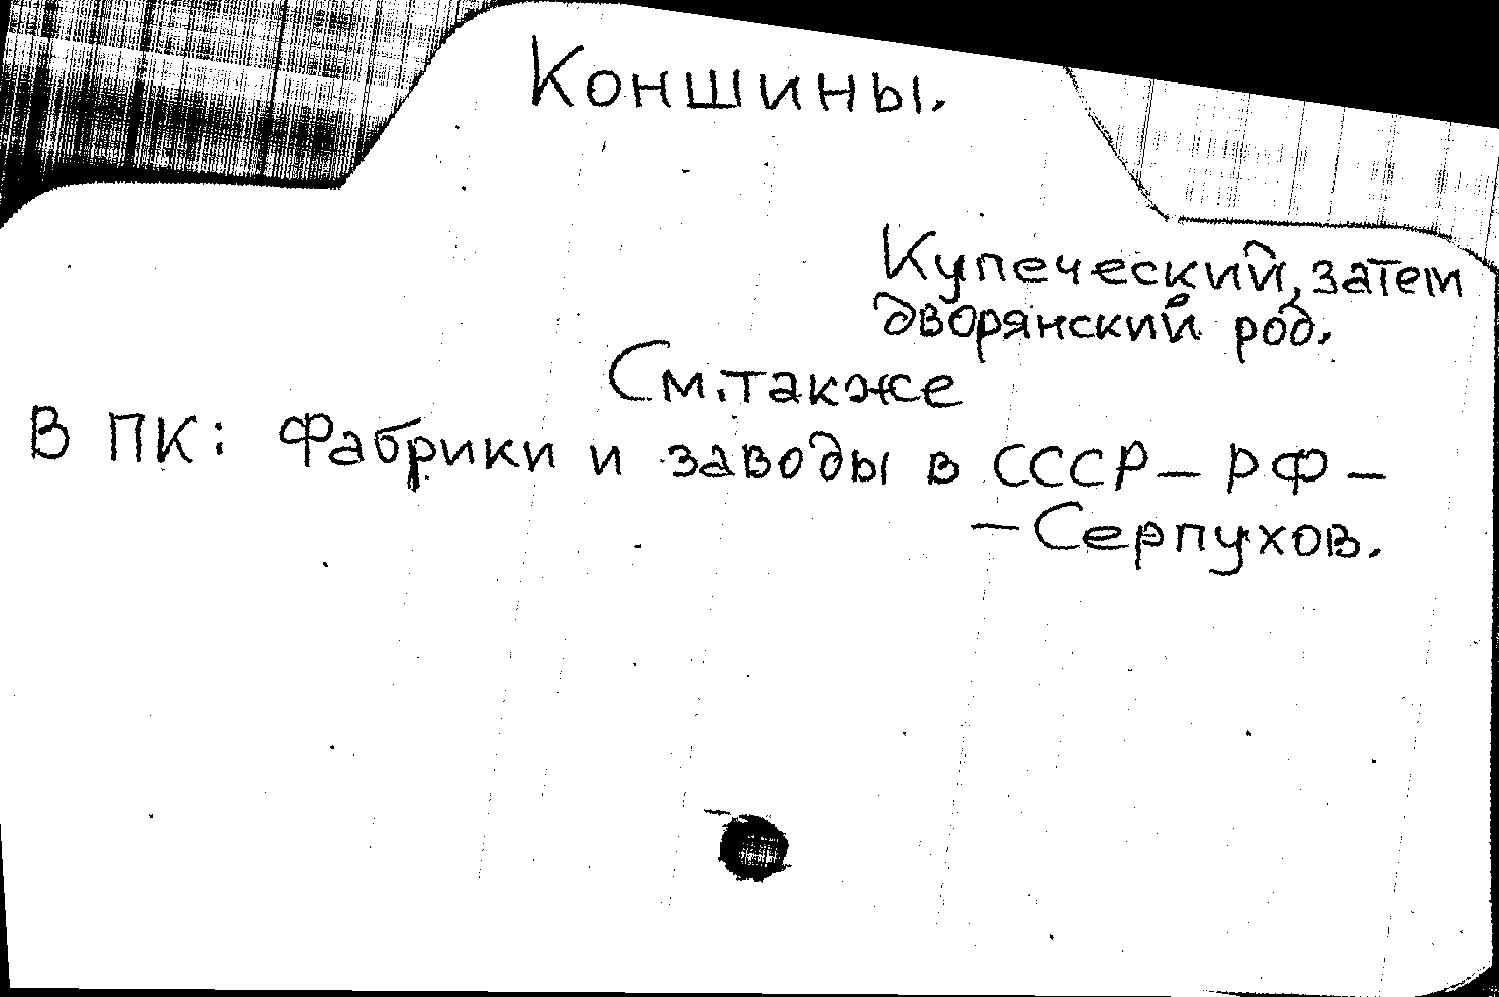 Коншины.
Купеческий, затем
дворянский род.
См. также
В ПК: Фабрики и заводы в СССР – РФ –
– Серпухов.